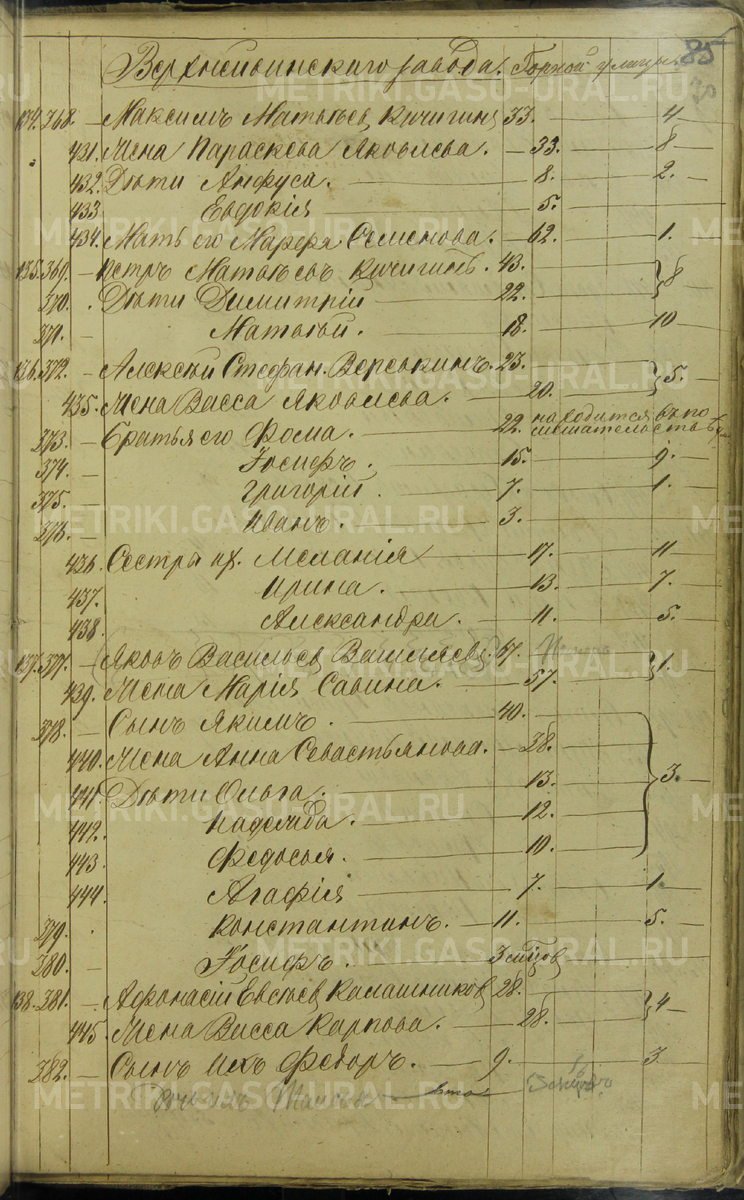 Верхнейвинскаго завода. Горной улицы. 85
134. 368. – Максимъ Матвѣевъ Кичигинъ 33. — 4
431. Жена Параскева Яковлева. — 33. — 8
432. Дѣти Анфуса. — 8. — 2.
433 Евдокія — 5.
434. Мать его Марфа Семенова. — 62. — 1.
135. 369. – Петръ Матвѣевъ Кичигинъ. 43. — 8
370. Дѣти Димитрій — 22.
371. – Матвѣй. — 18. — 10
136. 372. – Алексѣй Стефан. Веревкинъ. 23. — 5.
435. Жена Васса Яковлева. — 20.
373. – Братья его Фома. — 22. находится въ по
374. – Іосифъ. — 15. — 9.
375. Григорій — 7. — 1.
376. – Иванъ. — 3.
436. Сестры их. Меланія — 17. — 11
437. Ирина. — 13. — 7.
438. Александра. — 11. — 5.
137. 377. – Яковъ Васильевъ 67. — 1.
439. Жена Марія Савина. — 57.
378. – Сынъ Якимъ. — 40. — 3.
440. Жена Анна Севастьянова. — 38.
441. Дѣти Ольга. — 13.
442. Надежда. — 12.
443. Федосья. — 10.
444. Агафія — 7. — 1.
379. Константинъ. — 11. — 5.
380. – Іосифъ. — 3 мѣсяцов
138. 381. – Афонасій Евсѣев Калашников 28. — 4
445. Жена Васса Карпова. — 28.
382. – Сынъ Ихъ Федоръ. — 9. — 3
METRIKI.GASO-URAL.RU